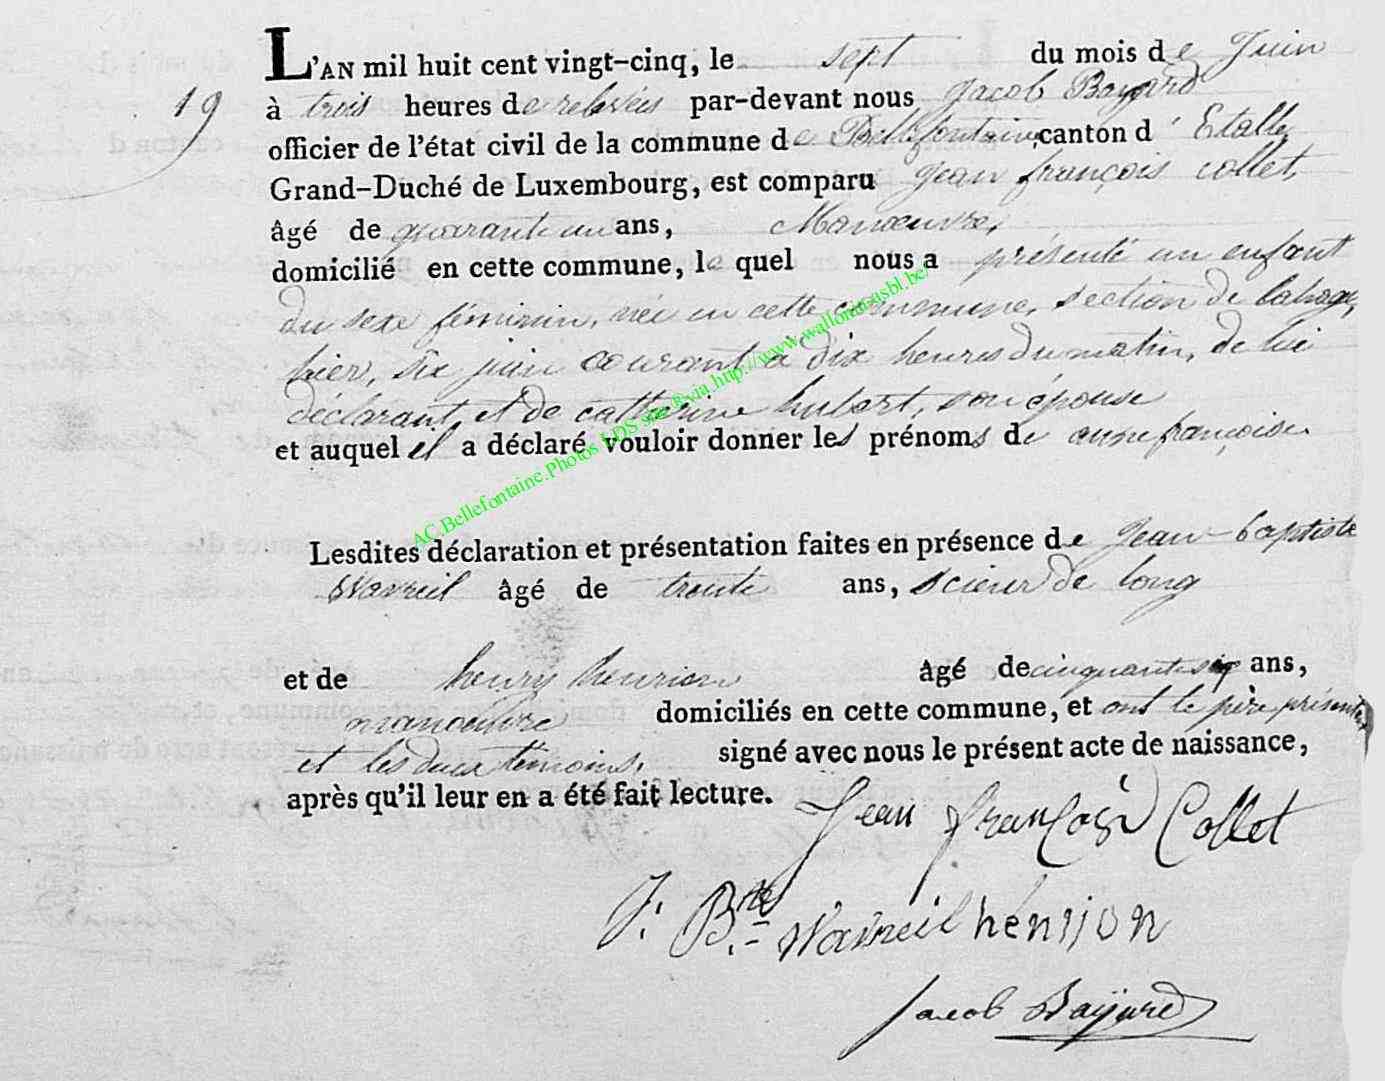 L'AN mil huit cent vingt-cinq, le sept du mois de Juin
19
à trois heures de relevées par-devant nous Jacob Bayard
officier de l'état civil de la commune de Bellefontaine canton d'Etalle
Grand-Duché de Luxembourg, est comparu Jean françois collet,
âgé de quarante un ans, Manoeuvre,
domicilié en cette commune, le quel nous a présenté un enfant
du sexe féminin, née en cette commune, section de lahage,
hier, six juin courant à dix heures du matin, de lui
déclarant et de catherine hubert, son épouse
et auquel il a déclaré vouloir donner les prénoms de anne françoise.
AC.Bellefontaine.Photos LDS sur Fs via http://www.wallonausbl.be/
Lesdites déclaration et présentation faites en présence de Jean baptiste
Wavreil âgé de trente ans, scieur de long
et de henry henrion âgé de cinquante six ans,
manoeuvre domiciliés en cette commune, et ont le père présenté
et les deux témoins, signé avec nous le présent acte de naissance,
après qu'il leur en a été fait lecture.
Jean françois Collet
J: B.te Wavreil henrion
Jacob Baÿard